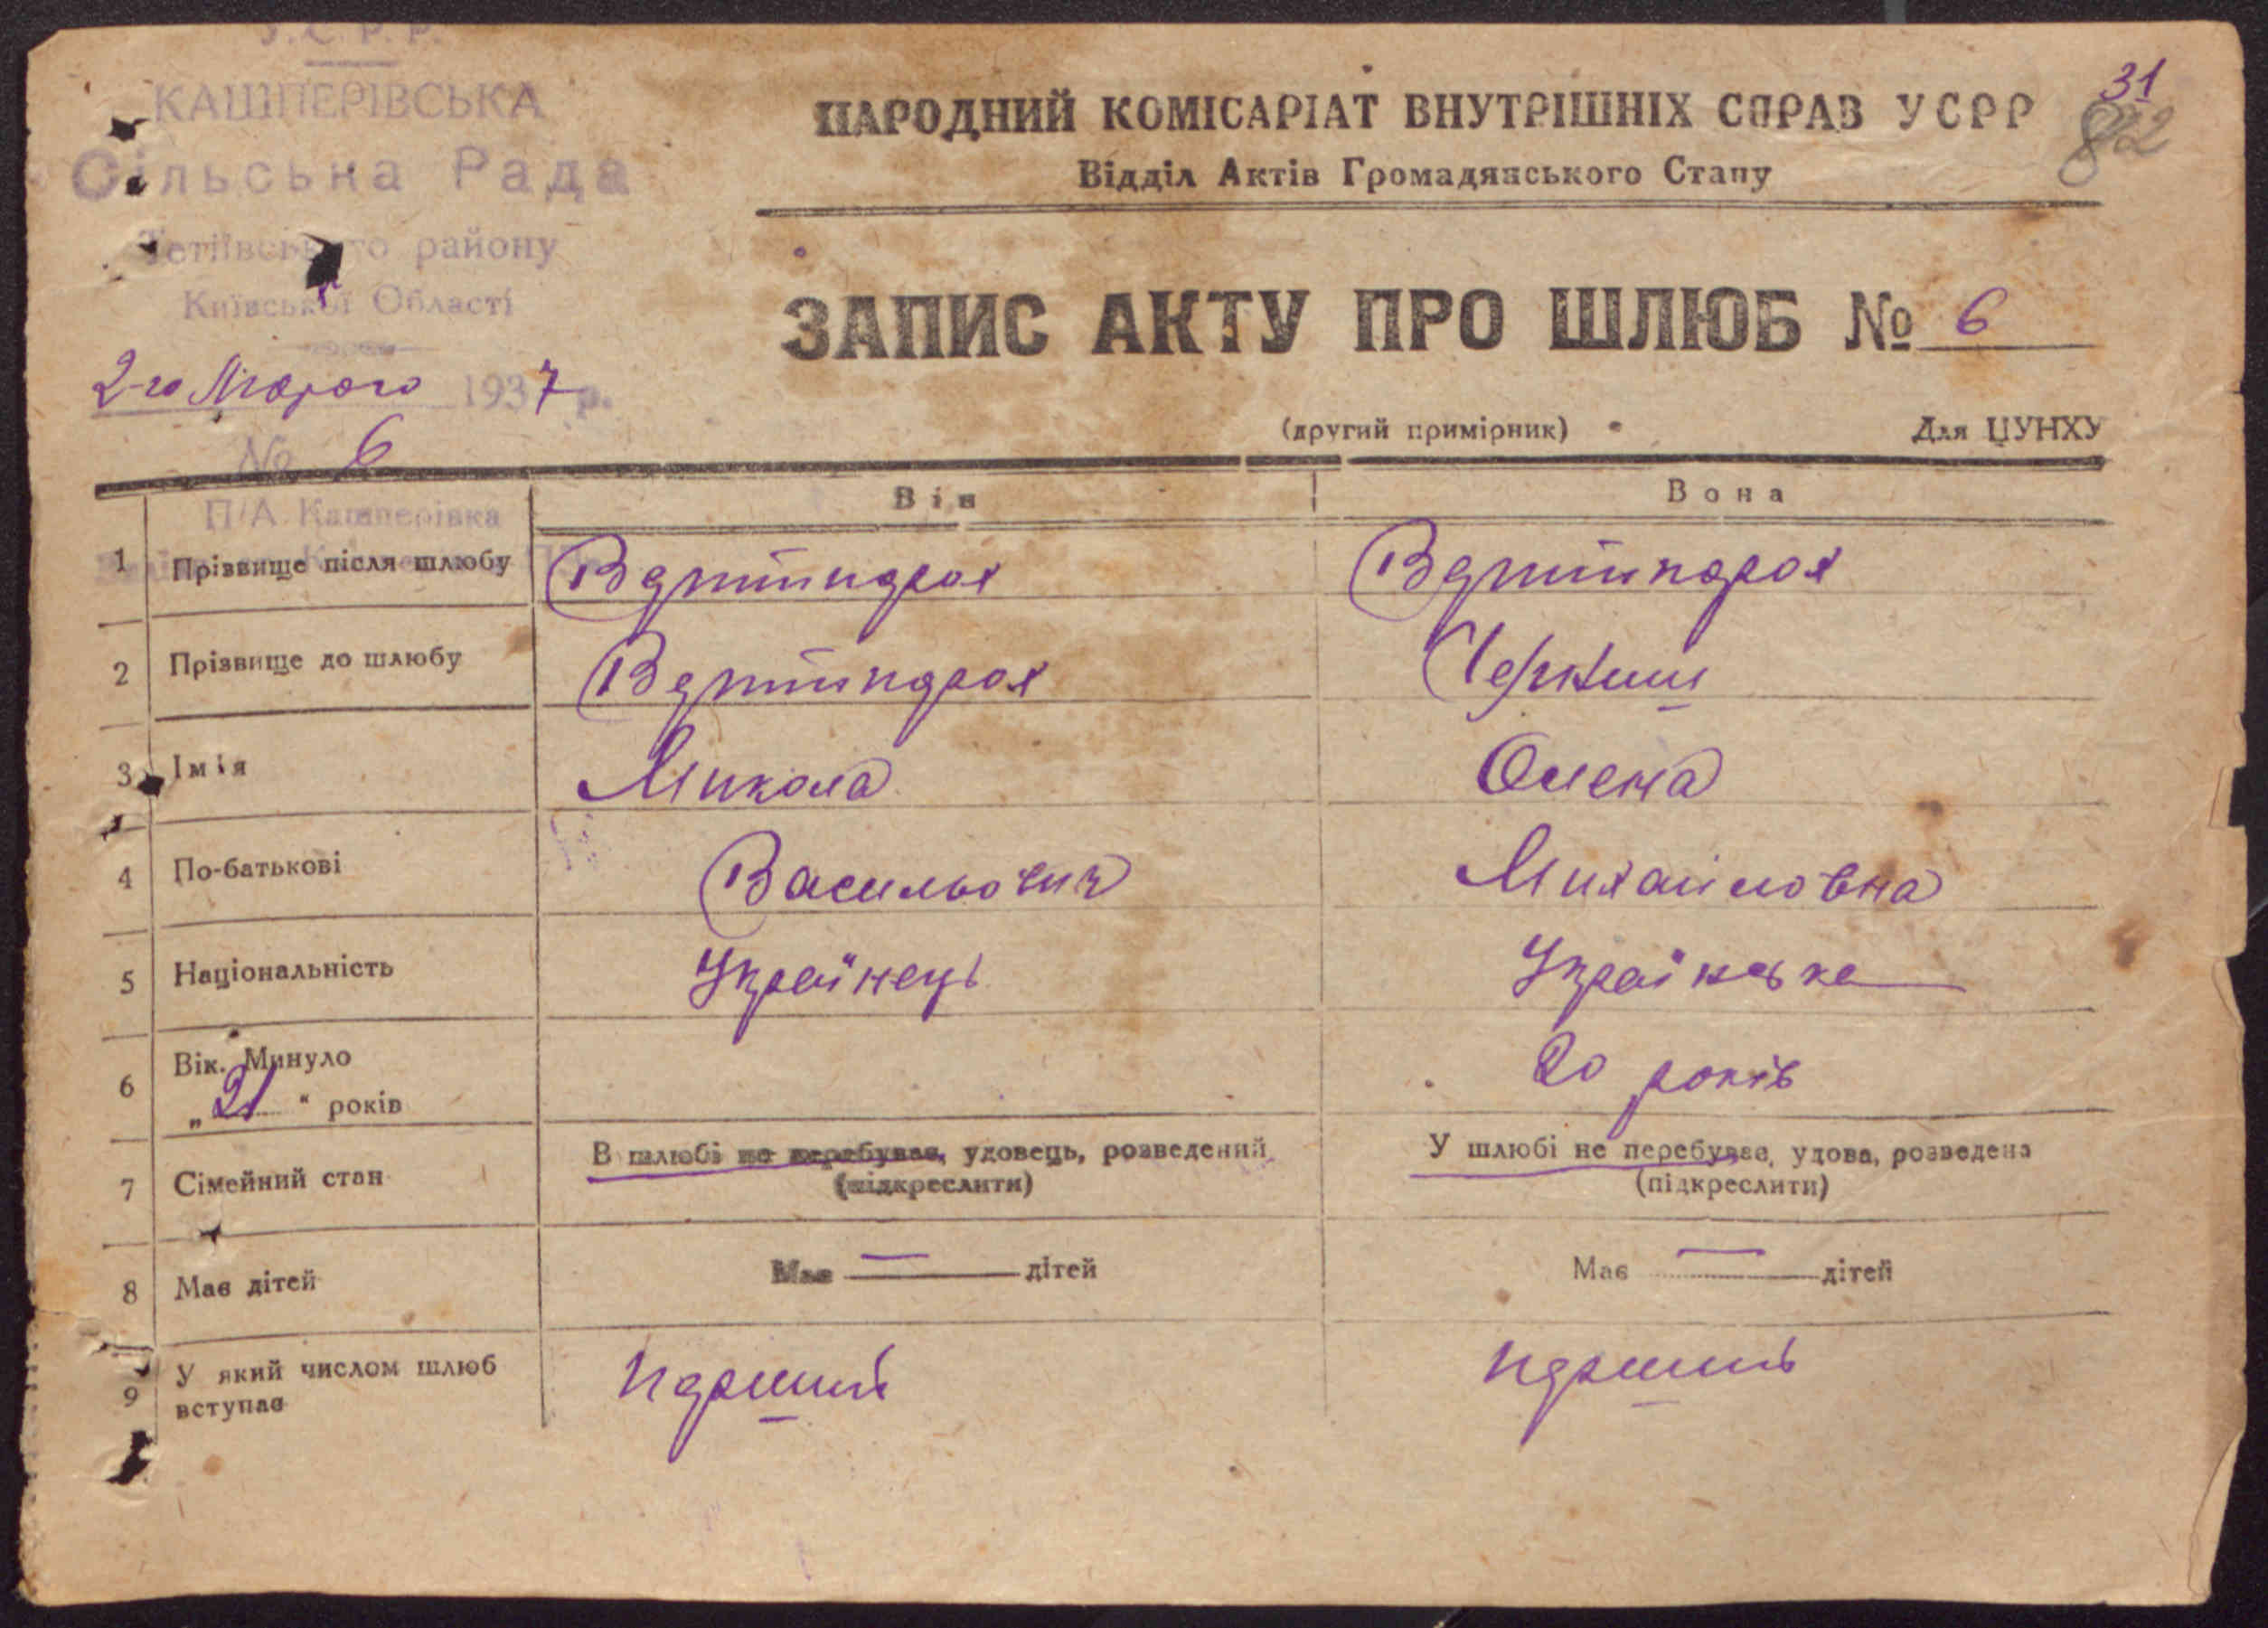 У.С.Р.Р.
КАШПЕРІВСЬКА
Сільська Рада
Тетіївського району
Київської Області
2-го Лютого 1937 р.
№ 6
П/А Кашперівка
31
82
НАРОДНИЙ КОМІСАРІАТ ВНУТРІШНІХ СПРАВ УСРР
Відділ Актів Громадянського Стану
ЗАПИС АКТУ ПРО ШЛЮБ № 6
(другий примірник) Для ЦУНХУ
Він Вона
1 Прізвище після шлюбу
2 Прізвище до шлюбу Черниш
3 Імія Микола Олена
4 По-батькові Васильович Михайловна
5 Національність Українець Українська
6 Вік. Минуло
„21“ років 20 років
7 Сімейний стан В шлюбі не перебував, удовець, розведений У шлюбі не перебуває, удова, розведена
(підкреслити) (підкреслити)
8 Має дітей Має — дітей Має — дітей
9 У який числом шлюб вступає перший перший